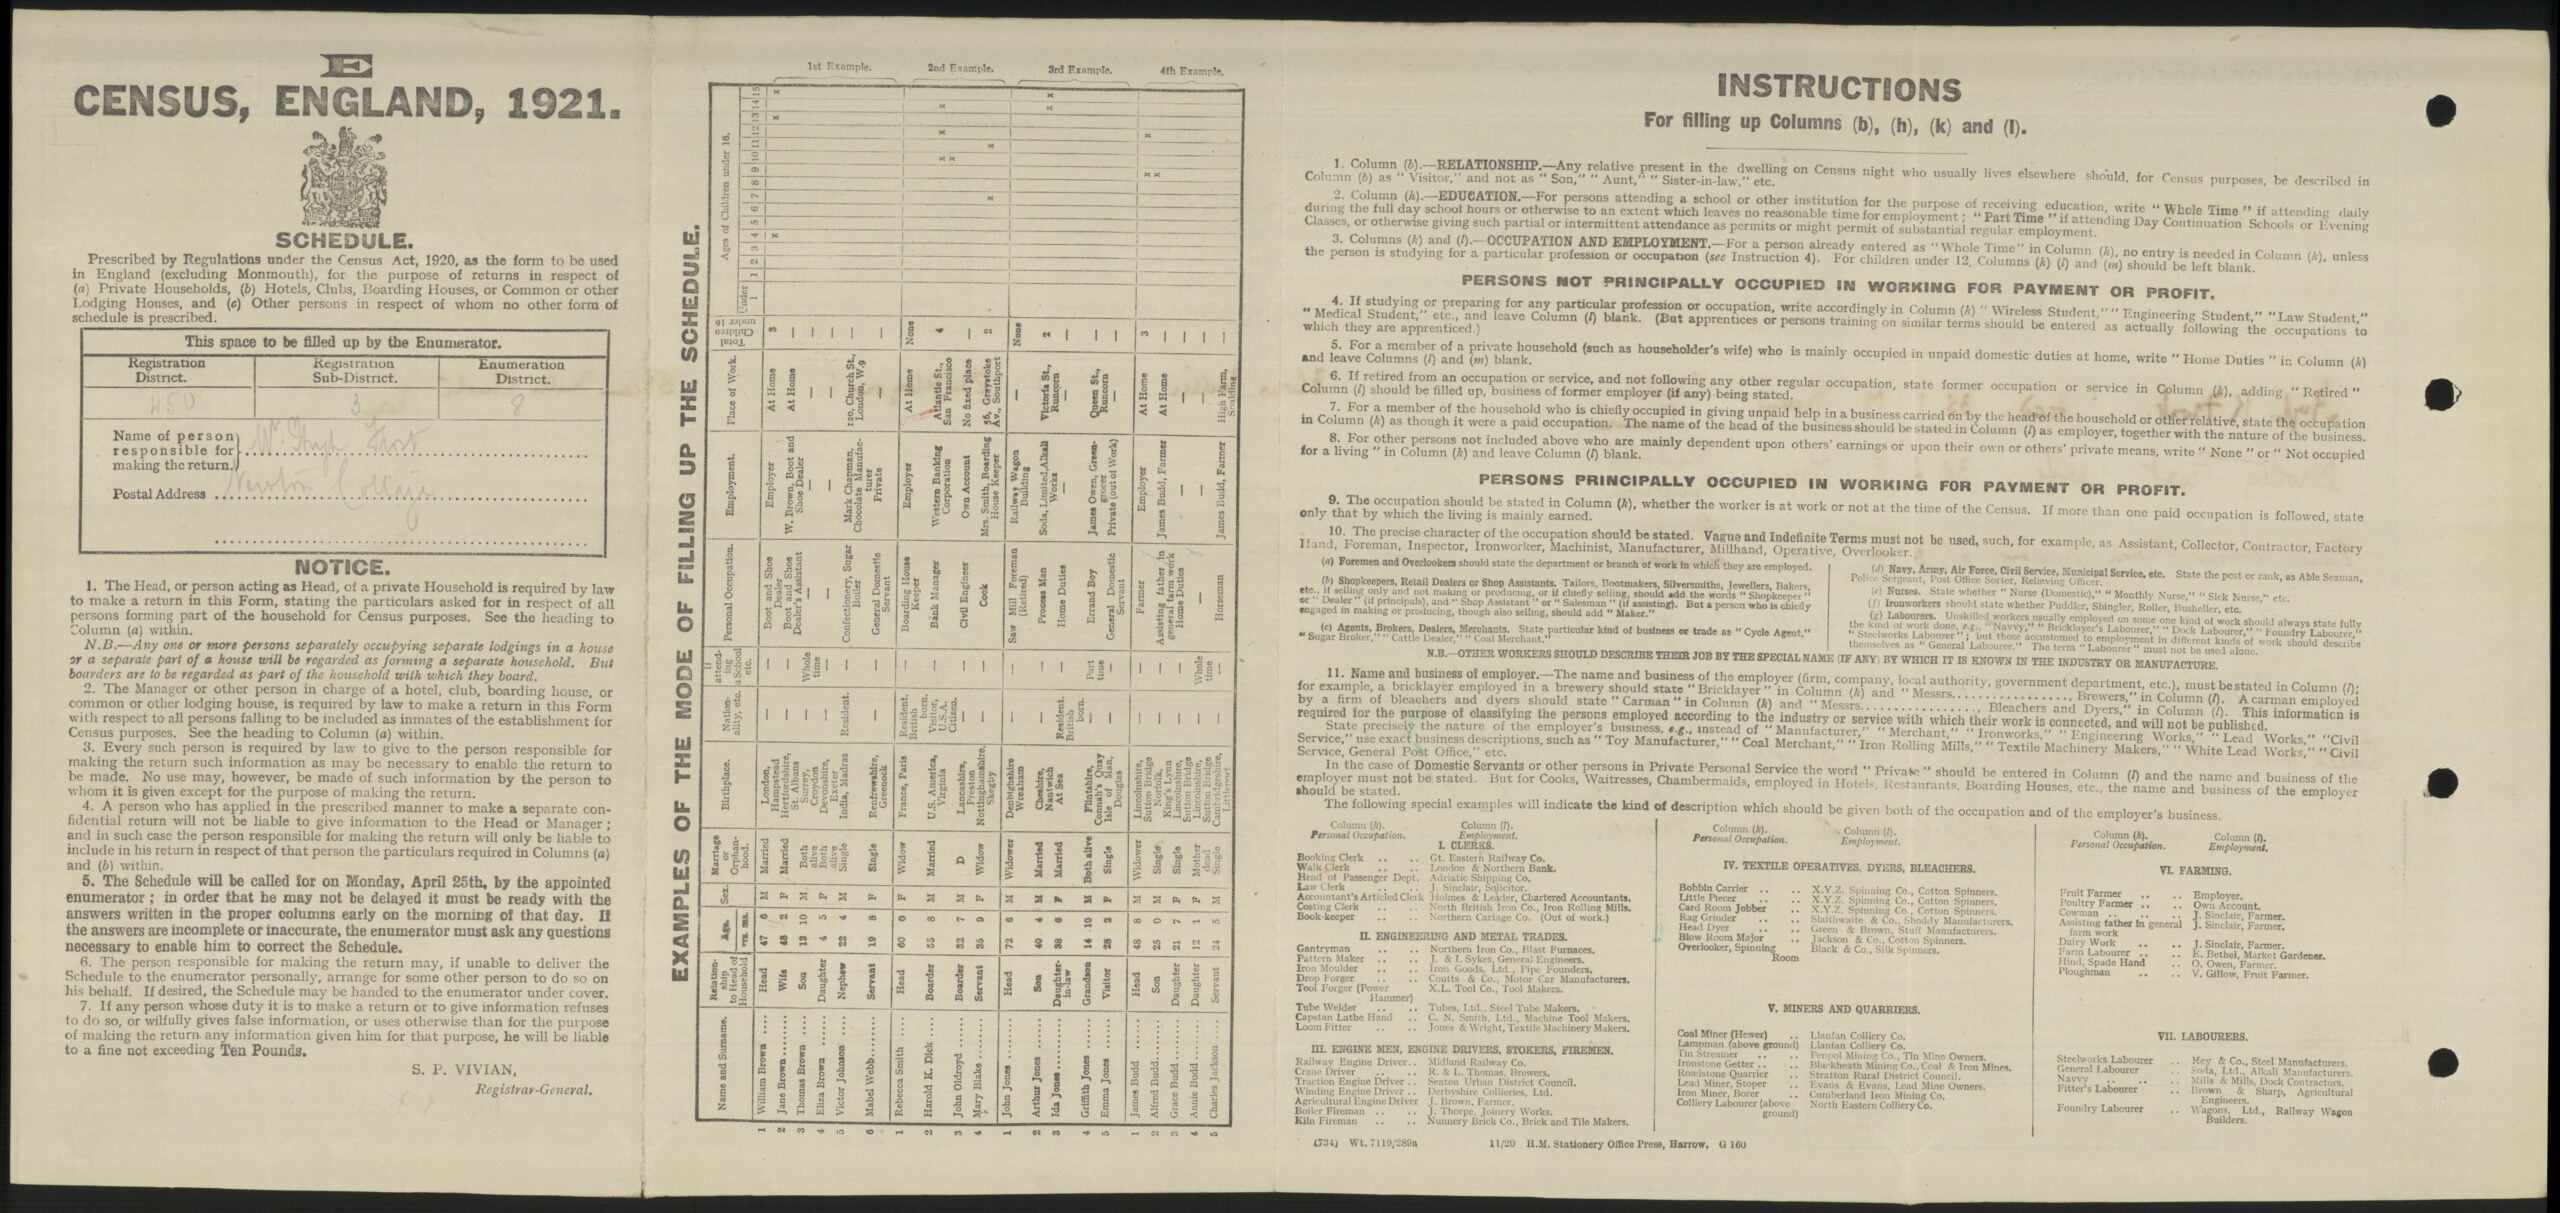 E
CENSUS, ENGLAND, 1921.
SCHEDULE.
Prescribed by Regulations under the Census Act, 1920, as the form to be used
in England (excluding Monmouth), for the purpose of returns in respect of
(a) Private Households, (b) Hotels, Clubs, Boarding Houses, or Common or other
Lodging Houses, and (c) Other persons in respect of whom no other form of
schedule is prescribed.
This space to be filled up by the Enumerator.
Registration District. Registration Sub-District. Enumeration District.
450 3 8
Name of person
responsible for
making the return.
Postal Address Newton Cottage
NOTICE.
1. The Head, or person acting as Head, of a private Household is required by law
to make a return in this Form, stating the particulars asked for in respect of all
persons forming part of the household for Census purposes. See the heading to
Column (a) within.
N.B.—Any one or more persons separately occupying separate lodgings in a house
or a separate part of a house will be regarded as forming a separate household. But
boarders are to be regarded as part of the household with which they board.
2. The Manager or other person in charge of a hotel, club, boarding house, or
common or other lodging house, is required by law to make a return in this Form
with respect to all persons falling to be included as inmates of the establishment for
Census purposes. See the heading to Column (a) within.
3. Every such person is required by law to give to the person responsible for
making the return such information as may be necessary to enable the return to
be made. No use may, however, be made of such information by the person to
whom it is given except for the purpose of making the return.
4. A person who has applied in the prescribed manner to make a separate con-
fidential return will not be liable to give information to the Head or Manager;
and in such case the person responsible for making the return will only be liable to
include in his return in respect of that person the particulars required in Columns (a)
and (b) within.
5. The Schedule will be called for on Monday, April 25th, by the appointed
enumerator; in order that he may not be delayed it must be ready with the
answers written in the proper columns early on the morning of that day. If
the answers are incomplete or inaccurate, the enumerator must ask any questions
necessary to enable him to correct the Schedule.
6. The person responsible for making the return may, if unable to deliver the
Schedule to the enumerator personally, arrange for some other person to do so on
his behalf. If desired, the Schedule may be handed to the enumerator under cover.
7. If any person whose duty it is to make a return or to give information refuses
to do so, or wilfully gives false information, or uses otherwise than for the purpose
of making the return any information given him for that purpose, he will be liable
to a fine not exceeding Ten Pounds.
S. P. VIVIAN,
Registrar-General.
EXAMPLES OF THE MODE OF FILLING UP THE SCHEDULE.
Name and Surname. Relation-ship to Head of Household Age. yrs. ms. Sex. Marriage or Orphan-hood. Birthplace. Nation-ality, etc. If attend-ing a School etc. Personal Occupation. Employment. Place of Work. Total Children under 16 Ages of Children under 16.
Under 1 1 2 3 4 5 6 7 8 9 10 11 12 13 14 15
1st Example.
1 William Brown Head 47 6 M Married London, Hampstead — — Boot and Shoe Dealer Employer At Home 3 x x x
2 Jane Brown Wife 48 2 F Married Hertfordshire, St. Albans — — Boot and Shoe Dealer's Assistant W. Brown, Boot and Shoe Dealer At Home —
3 Thomas Brown Son 13 10 M Both alive Surrey, Croydon — Whole time — — — —
4 Eliza Brown Daughter 4 5 F Both alive Devonshire, Exeter — — — — — —
5 Victor Johnson Nephew 22 4 M Single India, Madras Resident. — Confectionery, Sugar Boiler Mark Chapman, Chocolate Manufac-turer 120, Church St., London, W.9 —
6 Mabel Webb Servant 19 8 F Single Renfrewshire, Greenock — — General Domestic Servant Private — —
2nd Example.
1 Rebecca Smith Head 60 0 F Widow France, Paris Resident, British born. — Boarding House Keeper Employer At Home None
2 Harold K. Dick Boarder 55 8 M Married U.S. America, Virginia Visitor, U.S.A. Citizen. — Bank Manager Western Banking Corporation Atlantic St., San Francisco 4 x x x
3 John Oldroyd Boarder 32 7 M D Lancashire, Preston — — Civil Engineer Own Account No fixed place — x
4 Mary Blake Servant 35 9 F Widow Nottinghamshire, Skegby — — Cook Mrs. Smith, Boarding House Keeper 56, Greystoke Av., Southport 2 x x
3rd Example.
1 John Jones Head 72 6 M Widower Denbighshire Wrexham — — Saw Mill Foreman (Retired) Railway Wagon Building — None
2 Arthur Jones Son 40 4 M Married Cheshire, Nantwich — — Process Man Soda, Limited, Alkali Works Victoria St., Runcorn 2 x x
3 Ida Jones Daughter-in-law 38 6 F Married At Sea Resident. British born. — Home Duties — — —
4 Griffith Jones Grandson 14 10 M Both alive Flintshire, Connah's Quay — Part time Errand Boy James Owen, Green-grocer Queen St., Runcorn —
5 Emma Jones Visitor 28 2 F Single Isle of Man, Douglas — — General Domestic Servant Private (out of Work) — —
4th Example.
1 James Budd Head 48 8 M Widower Lincolnshire, Sutton Bridge — — Farmer Employer At Home 3 x x
2 Alfred Budd Son 25 0 M Single Norfolk, King's Lynn — — Assisting father in general farm work James Budd, Farmer At Home — x
3 Grace Budd Daughter 21 7 F Single Lincolnshire, Sutton Bridge — — Home Duties — — —
4 Annie Budd Daughter 12 1 F Mother dead Lincolnshire, Sutton Bridge — Whole time — — — —
5 Charles Jackson Servant 24 5 M Single Cambridgeshire, Littleport — — Horseman James Budd, Farmer High Farm, —
INSTRUCTIONS
For filling up Columns (b), (h), (k) and (l).
1. Column (b).—RELATIONSHIP.—Any relative present in the dwelling on Census night who usually lives elsewhere should, for Census purposes, be described in
Column (b) as "Visitor," and not as "Son," "Aunt," "Sister-in-law," etc.
2. Column (h).—EDUCATION.—For persons attending a school or other institution for the purpose of receiving education, write "Whole Time" if attending daily
during the full day school hours or otherwise to an extent which leaves no reasonable time for employment; "Part Time" if attending Day Continuation Schools or Evening
Classes, or otherwise giving such partial or intermittent attendance as permits or might permit of substantial regular employment.
3. Columns (k) and (l).—OCCUPATION AND EMPLOYMENT.—For a person already entered as "Whole Time" in Column (h), no entry is needed in Column (k), unless
the person is studying for a particular profession or occupation (see Instruction 4). For children under 12, Columns (k) (l) and (m) should be left blank.
PERSONS NOT PRINCIPALLY OCCUPIED IN WORKING FOR PAYMENT OR PROFIT.
4. If studying or preparing for any particular profession or occupation, write accordingly in Column (k) "Wireless Student," "Engineering Student," "Law Student,"
"Medical Student," etc., and leave Column (l) blank. (But apprentices or persons training on similar terms should be entered as actually following the occupations to
which they are apprenticed.)
5. For a member of a private household (such as householder's wife) who is mainly occupied in unpaid domestic duties at home, write "Home Duties" in Column (k)
and leave Columns (l) and (m) blank.
6. If retired from an occupation or service, and not following any other regular occupation, state former occupation or service in Column (k), adding "Retired"
Column (l) should be filled up, business of former employer (if any) being stated.
7. For a member of the household who is chiefly occupied in giving unpaid help in a business carried on by the head of the household or other relative, state the occupation
in Column (k) as though it were a paid occupation. The name of the head of the business should be stated in Column (l) as employer, together with the nature of the business.
8. For other persons not included above who are mainly dependent upon others' earnings or upon their own or others' private means, write "None" or "Not occupied
for a living" in Column (k) and leave Column (l) blank.
PERSONS PRINCIPALLY OCCUPIED IN WORKING FOR PAYMENT OR PROFIT.
9. The occupation should be stated in Column (k), whether the worker is at work or not at the time of the Census. If more than one paid occupation is followed, state
only that by which the living is mainly earned.
10. The precise character of the occupation should be stated. Vague and Indefinite Terms must not be used, such, for example, as Assistant, Collector, Contractor, Factory
Hand, Foreman, Inspector, Ironworker, Machinist, Manufacturer, Millhand, Operative, Overlooker.
(a) Foremen and Overlookers should state the department or branch of work in which they are employed.
(b) Shopkeepers, Retail Dealers or Shop Assistants. Tailors, Bootmakers, Silversmiths, Jewellers, Bakers,
etc., if selling only and not making or producing, or if chiefly selling, should add the words "Shopkeeper"
or "Dealer" (if principals), and "Shop Assistant" or "Salesman" (if assisting). But a person who is chiefly
engaged in making or producing, though also selling, should add "Maker."
(c) Agents, Brokers, Dealers, Merchants. State particular kind of business or trade as "Cycle Agent,"
"Sugar Broker," "Cattle Dealer," "Coal Merchant."
(d) Navy, Army, Air Force, Civil Service, Municipal Service, etc. State the post or rank, as Able Seaman,
Police Sergeant, Post Office Sorter, Relieving Officer.
(e) Nurses. State whether "Nurse (Domestic)," "Monthly Nurse," "Sick Nurse," etc.
(f) Ironworkers should state whether Puddler, Shingler, Roller, Busheller, etc.
(g) Labourers. Unskilled workers usually employed on some one kind of work should always state fully
the kind of work done, e.g., "Navvy," "Bricklayer's Labourer," "Dock Labourer," "Foundry Labourer,"
"Steelworks Labourer"; but those accustomed to employment in different kinds of work should describe
themselves as "General Labourer." The term "Labourer" must not be used alone.
N.B.—OTHER WORKERS SHOULD DESCRIBE THEIR JOB BY THE SPECIAL NAME (IF ANY) BY WHICH IT IS KNOWN IN THE INDUSTRY OR MANUFACTURE.
11. Name and business of employer.—The name and business of the employer (firm, company, local authority, government department, etc.), must be stated in Column (l);
for example, a bricklayer employed in a brewery should state "Bricklayer" in Column (k) and "Messrs................., Brewers," in Column (l). A carman employed
by a firm of bleachers and dyers should state "Carman" in Column (k) and "Messrs................., Bleachers and Dyers," in Column (l). This information is
required for the purpose of classifying the persons employed according to the industry or service with which their work is connected, and will not be published.
State precisely the nature of the employer's business, e.g., instead of "Manufacturer," "Merchant," "Ironworks," "Engineering Works," "Lead Works," "Civil
Service," use exact business descriptions, such as "Toy Manufacturer," "Coal Merchant," "Iron Rolling Mills," "Textile Machinery Makers," "White Lead Works," "Civil
Service, General Post Office," etc.
In the case of Domestic Servants or other persons in Private Personal Service the word "Private" should be entered in Column (l) and the name and business of the
employer must not be stated. But for Cooks, Waitresses, Chambermaids, employed in Hotels, Restaurants, Boarding Houses, etc., the name and business of the employer
should be stated.
The following special examples will indicate the kind of description which should be given both of the occupation and of the employer's business.
Column (k). Personal Occupation. Column (l). Employment.
I. CLERKS.
Booking Clerk .. .. Gt. Eastern Railway Co.
Walk Clerk .. .. London & Northern Bank.
Head of Passenger Dept. Adriatic Shipping Co.
Law Clerk .. .. J. Sinclair, Solicitor.
Accountant's Articled Clerk Holmes & Leader, Chartered Accountants.
Costing Clerk .. .. North British Iron Co., Iron Rolling Mills.
Book-keeper .. .. Northern Cartage Co. (Out of work.)
II. ENGINEERING AND METAL TRADES.
Gantryman .. .. Northern Iron Co., Blast Furnaces.
Pattern Maker .. .. J. & I. Sykes, General Engineers.
Iron Moulder .. .. Iron Goods, Ltd., Pipe Founders.
Drop Forger .. .. Coutts & Co., Motor Car Manufacturers.
Tool Forger (Power Hammer) X.L. Tool Co., Tool Makers.
Tube Welder .. .. Tubes, Ltd., Steel Tube Makers.
Capstan Lathe Hand .. C. N. Smith, Ltd., Machine Tool Makers.
Loom Fitter .. .. Jones & Wright, Textile Machinery Makers.
III. ENGINE MEN, ENGINE DRIVERS, STOKERS, FIREMEN.
Railway Engine Driver .. Midland Railway Co.
Crane Driver .. .. R. & L. Thomas, Brewers.
Traction Engine Driver .. Seaton Urban District Council.
Winding Engine Driver .. Derbyshire Collieries, Ltd.
Agricultural Engine Driver J. Brown, Farmer.
Boiler Fireman .. .. J. Thorpe, Joinery Works.
Kiln Fireman .. .. Nunnery Brick Co., Brick and Tile Makers.
Column (k). Personal Occupation. Column (l). Employment.
IV. TEXTILE OPERATIVES, DYERS, BLEACHERS.
Bobbin Carrier .. .. X.Y.Z. Spinning Co., Cotton Spinners.
Little Piecer .. .. X.Y.Z. Spinning Co., Cotton Spinners.
Card Room Jobber .. X.Y.Z. Spinning Co., Cotton Spinners.
Rag Grinder .. .. Slaithwaite & Co., Shoddy Manufacturers.
Head Dyer .. .. Green & Brown, Stuff Manufacturers.
Blow Room Major .. Jackson & Co., Cotton Spinners.
Overlooker, Spinning Room Black & Co., Silk Spinners.
V. MINERS AND QUARRIERS.
Coal Miner (Hewer) .. Llanfan Colliery Co.
Lampman (above ground) Llanfan Colliery Co.
Tin Streamer .. .. Penpol Mining Co., Tin Mine Owners.
Ironstone Getter .. .. Blackheath Mining Co., Coal & Iron Mines.
Roadstone Quarrier .. Stratton Rural District Council.
Lead Miner, Stoper .. Evans & Evans, Lead Mine Owners.
Iron Miner, Borer .. Cumberland Iron Mining Co.
Colliery Labourer (above ground) North Eastern Colliery Co.
Column (k). Personal Occupation. Column (l). Employment.
VI. FARMING.
Fruit Farmer .. .. Employer.
Poultry Farmer .. .. Own Account.
Cowman .. .. J. Sinclair, Farmer.
Assisting father in general farm work J. Sinclair, Farmer.
Dairy Work .. .. J. Sinclair, Farmer.
Farm Labourer .. .. E. Bethel, Market Gardener.
Hind, Spade Hand .. O. Owen, Farmer.
Ploughman .. .. V. Gillow, Fruit Farmer.
VII. LABOURERS.
Steelworks Labourer .. Key & Co., Steel Manufacturers.
General Labourer .. Soda, Ltd., Alkali Manufacturers.
Navvy .. .. Mills & Mills, Dock Contractors.
Fitter's Labourer .. Brown & Sharp, Agricultural Engineers.
Foundry Labourer .. Wagons, Ltd., Railway Wagon Builders.
(734) Wt. 7119/289a 11/20 H.M. Stationery Office Press, Harrow. G 160